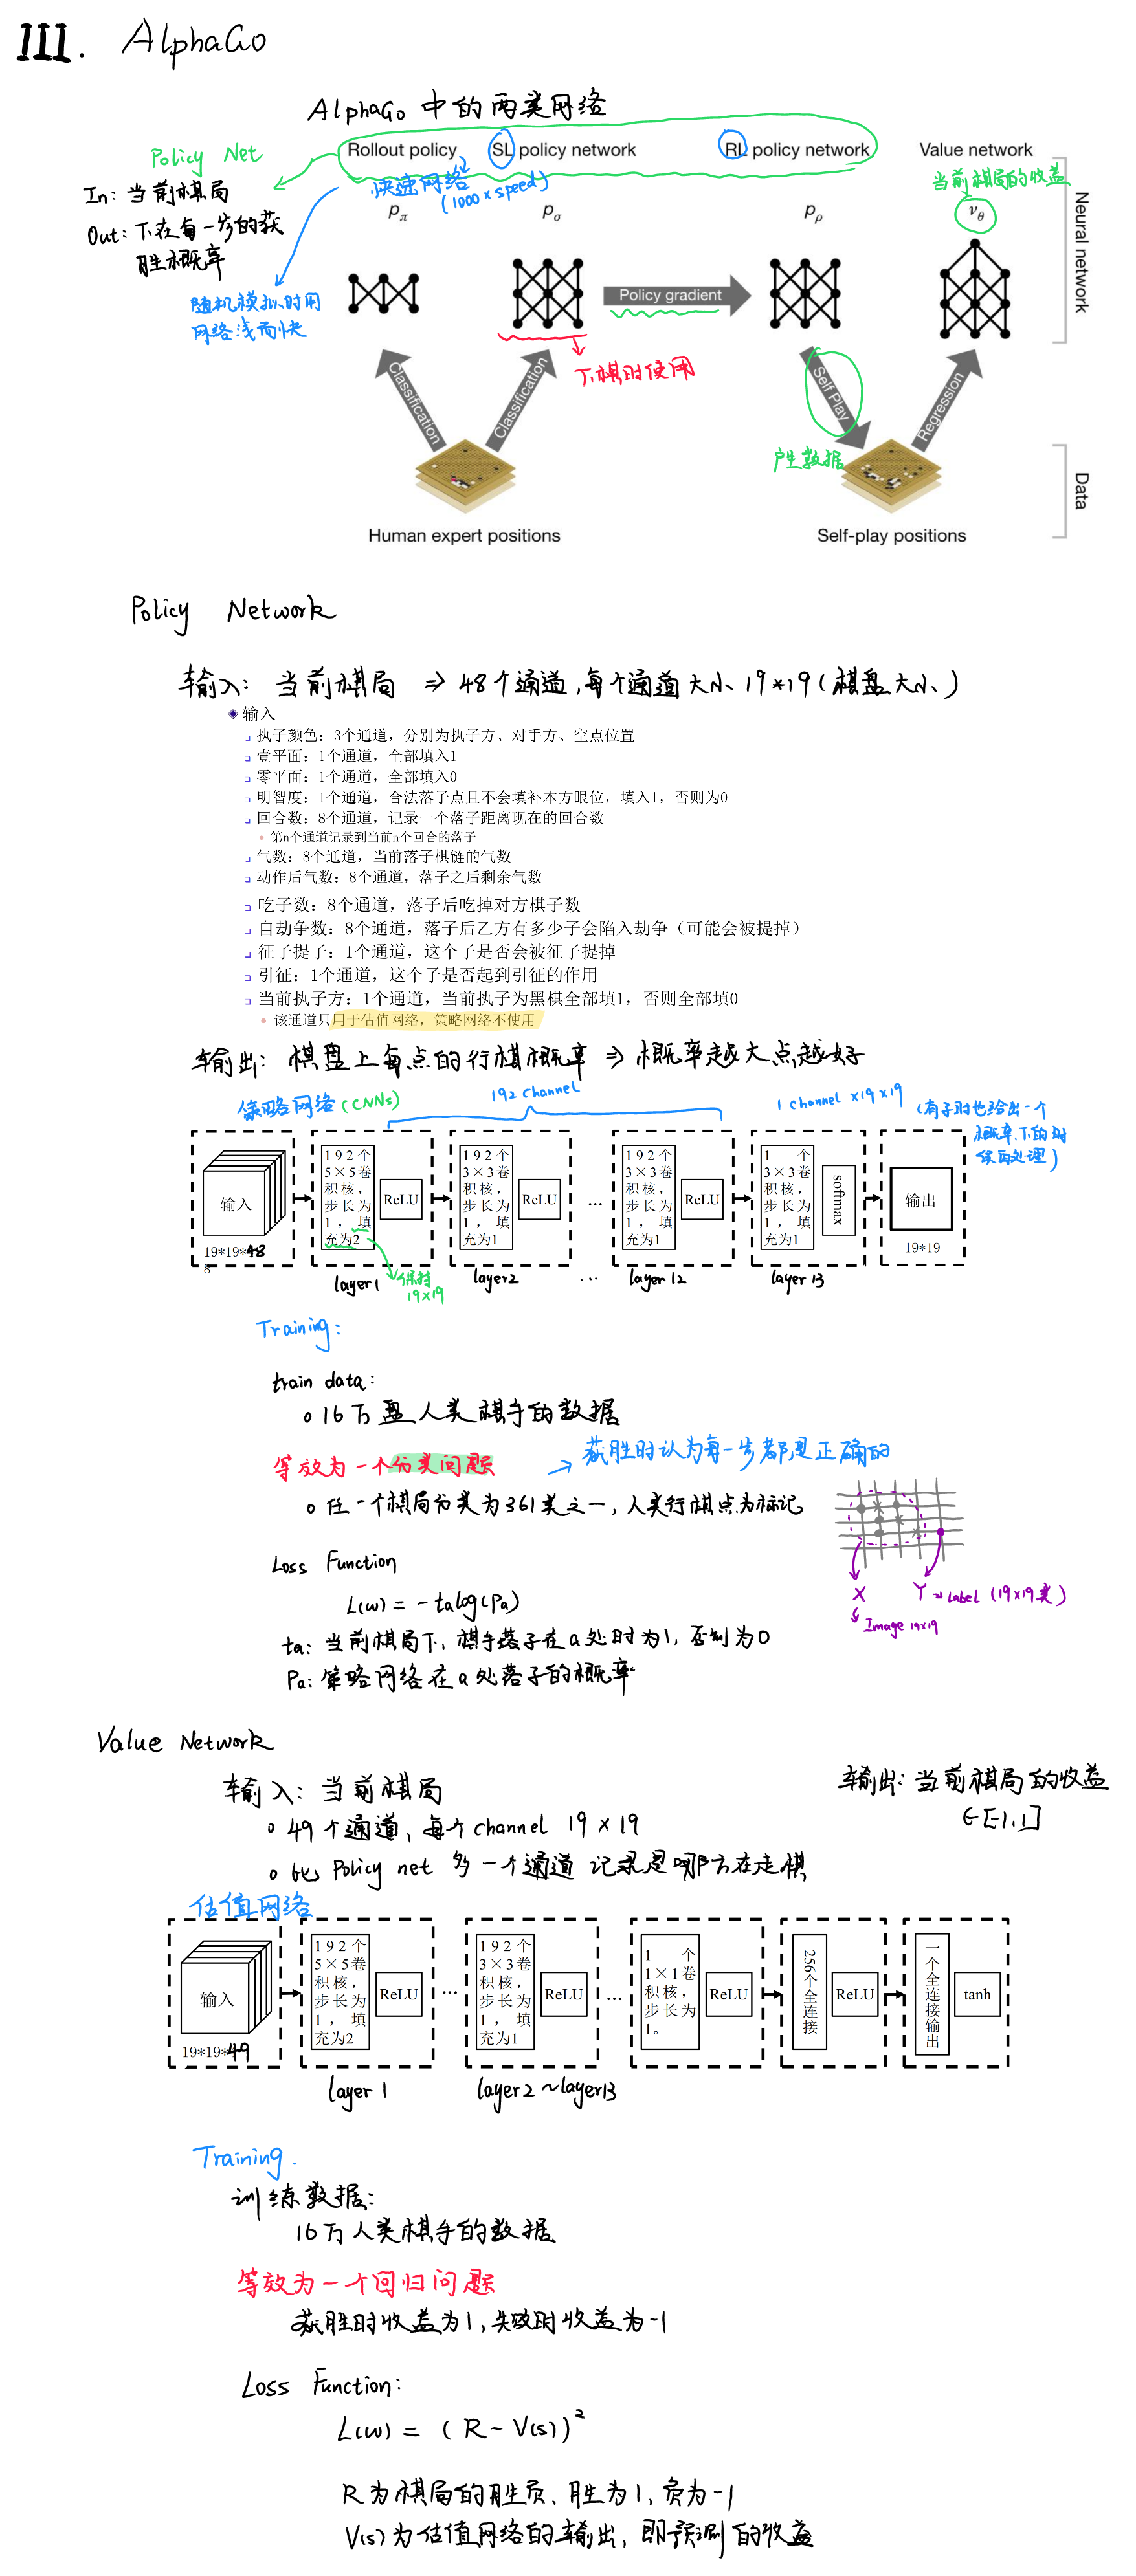 III. AlphaGo
AlphaGo 中的两类网络
Policy Net
Rollout policy
SL policy network
RL policy network
Value network
In: 当前棋局
快速网络
(1000×speed)
当前棋局的收益
Out: 下在每一步的获
胜概率
pπ
pσ
pρ
νθ
Neural network
随机模拟时用
网络浅而快
Policy gradient
下棋时使用
Classification
Classification
Self Play
Regression
产生数据
Data
Human expert positions
Self-play positions
Policy Network
输入: 当前棋局 ⇒ 48个通道,每个通道大小 19*19(棋盘大小)
输入
执子颜色：3个通道，分别为执子方、对手方、空点位置
壹平面：1个通道，全部填入1
零平面：1个通道，全部填入0
明智度：1个通道，合法落子点且不会填补本方眼位，填入1，否则为0
回合数：8个通道，记录一个落子距离现在的回合数
第n个通道记录到当前n个回合的落子
气数：8个通道，当前落子棋链的气数
动作后气数：8个通道，落子之后剩余气数
吃子数：8个通道，落子后吃掉对方棋子数
自劫争数：8个通道，落子后乙方有多少子会陷入劫争（可能会被提掉）
征子提子：1个通道，这个子是否会被征子提掉
引征：1个通道，这个子是否起到引征的作用
当前执子方：1个通道，当前执子为黑棋全部填1，否则全部填0
该通道只用于估值网络，策略网络不使用
输出: 棋盘上每点的行棋概率 ⇒ 概率越大点越好
策略网络(CNNs)
192 channel
1 channel ×19×19
(有子时也给出一个
概率,下的时
候再处理)
输入
19*19*48
8
192个
5×5卷
积核，
步长为
1，填
充为2
ReLU
192个
3×3卷
积核，
步长为
1，填
充为1
ReLU
...
192个
3×3卷
积核，
步长为
1，填
充为1
ReLU
1个
3×3卷
积核，
步长为
1，填
充为1
softmax
输出
19*19
layer1
保持
19×19
layer2
...
layer 12
layer 13
Training:
train data:
16万盘人类棋手的数据
等效为一个分类问题
→ 获胜时认为每一步都是正确的
任一个棋局分类为361类之一,人类行棋点为标记
X
Y → Label (19×19类)
Image 19×19
Loss Function
L(w) = -ta log(Pa)
ta: 当前棋局下,棋手落子在a处时为1,否则为0
Pa: 策略网络在a处落子的概率
Value Network
输入: 当前棋局
输出: 当前棋局的收益
∈[-1,1]
49个通道,每个channel 19×19
比 Policy net 多一个通道 记录是哪方在走棋
估值网络
输入
19*19*49
192个
5×5卷
积核，
步长为
1，填
充为2
ReLU
...
192个
3×3卷
积核，
步长为
1，填
充为1
ReLU
...
1个
1×1卷
积核，
步长为
1。
ReLU
256个全连接
ReLU
一个全连接输出
tanh
layer 1
layer2 ~layer13
Training.
训练数据:
16万人类棋手的数据
等效为一个回归问题
获胜时收益为1,失败时收益为-1
Loss Function:
L(w) = (R - V(s))²
R为棋局的胜负,胜为1,负为-1
V(s)为估值网络的输出,即预测的收益